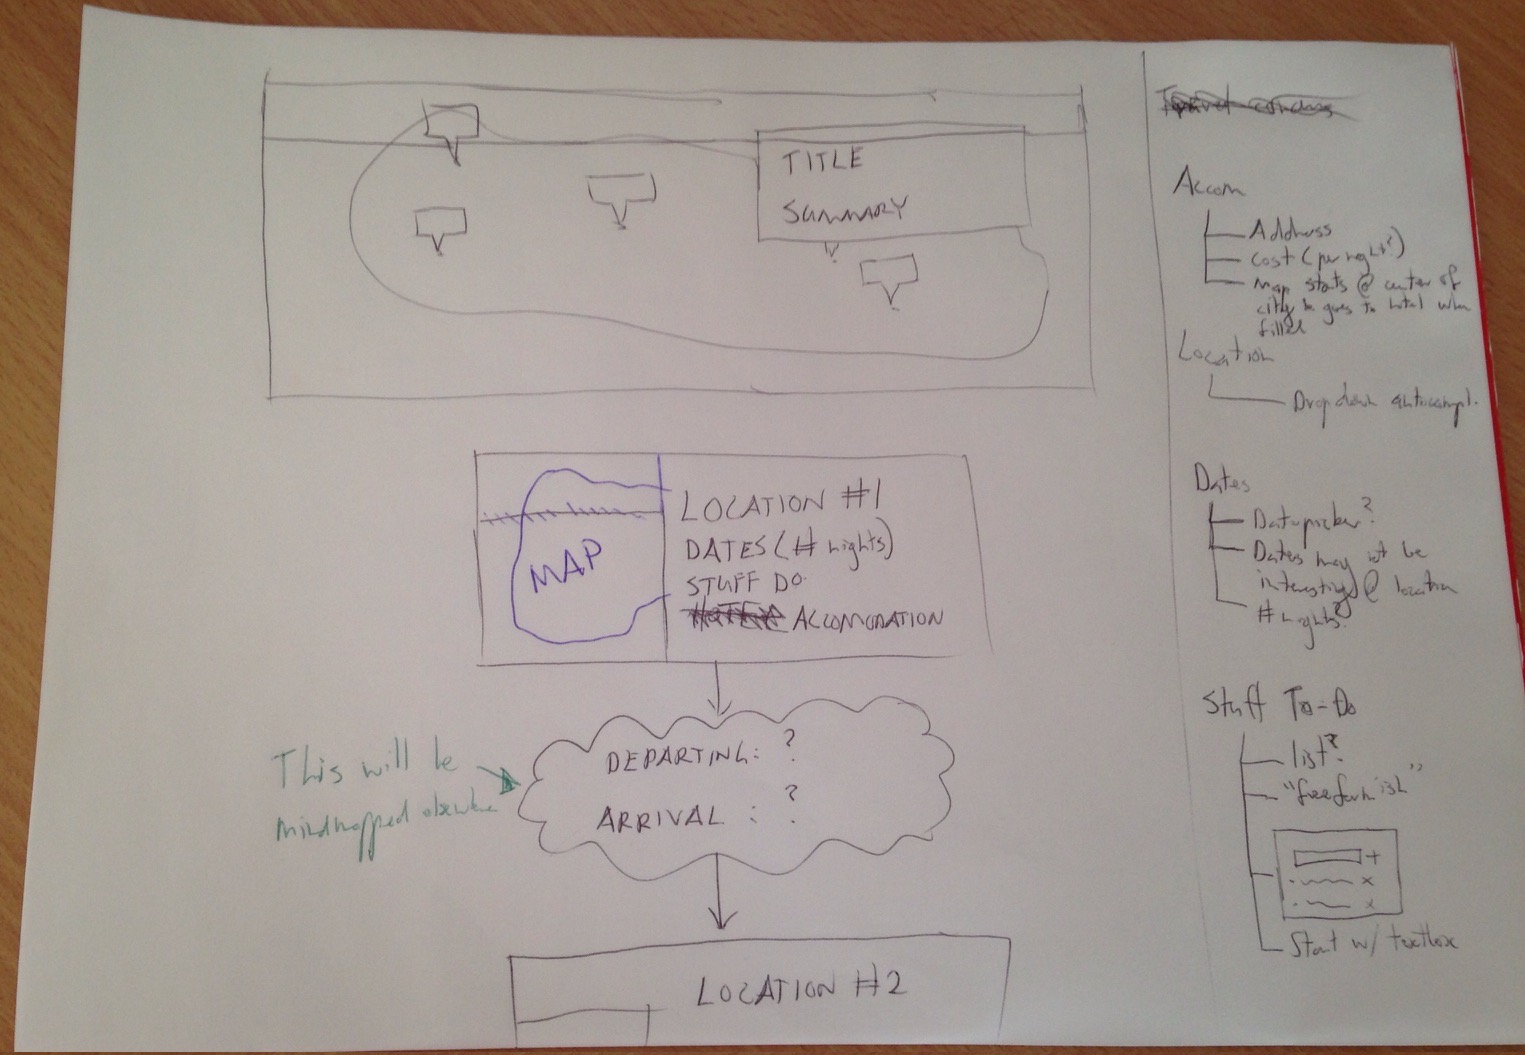 TITLE
SUMMARY
LOCATION #1
DATES (# nights)
STUFF DO
ACCOMODATION
MAP
DEPARTING: ?
ARRIVAL : ?
This will be
mindmapped elsewhere
LOCATION #2
Accom
Address
Cost (per night?)
Map starts @ center of
city & goes to hotel when
filled
Location
Dropdown autocompl.
Dates
Datepicker?
Dates may not be
interesting @ location
# nights?
Stuff To-Do
list?
"freeformish"
+
x
x
Start w/ textbox